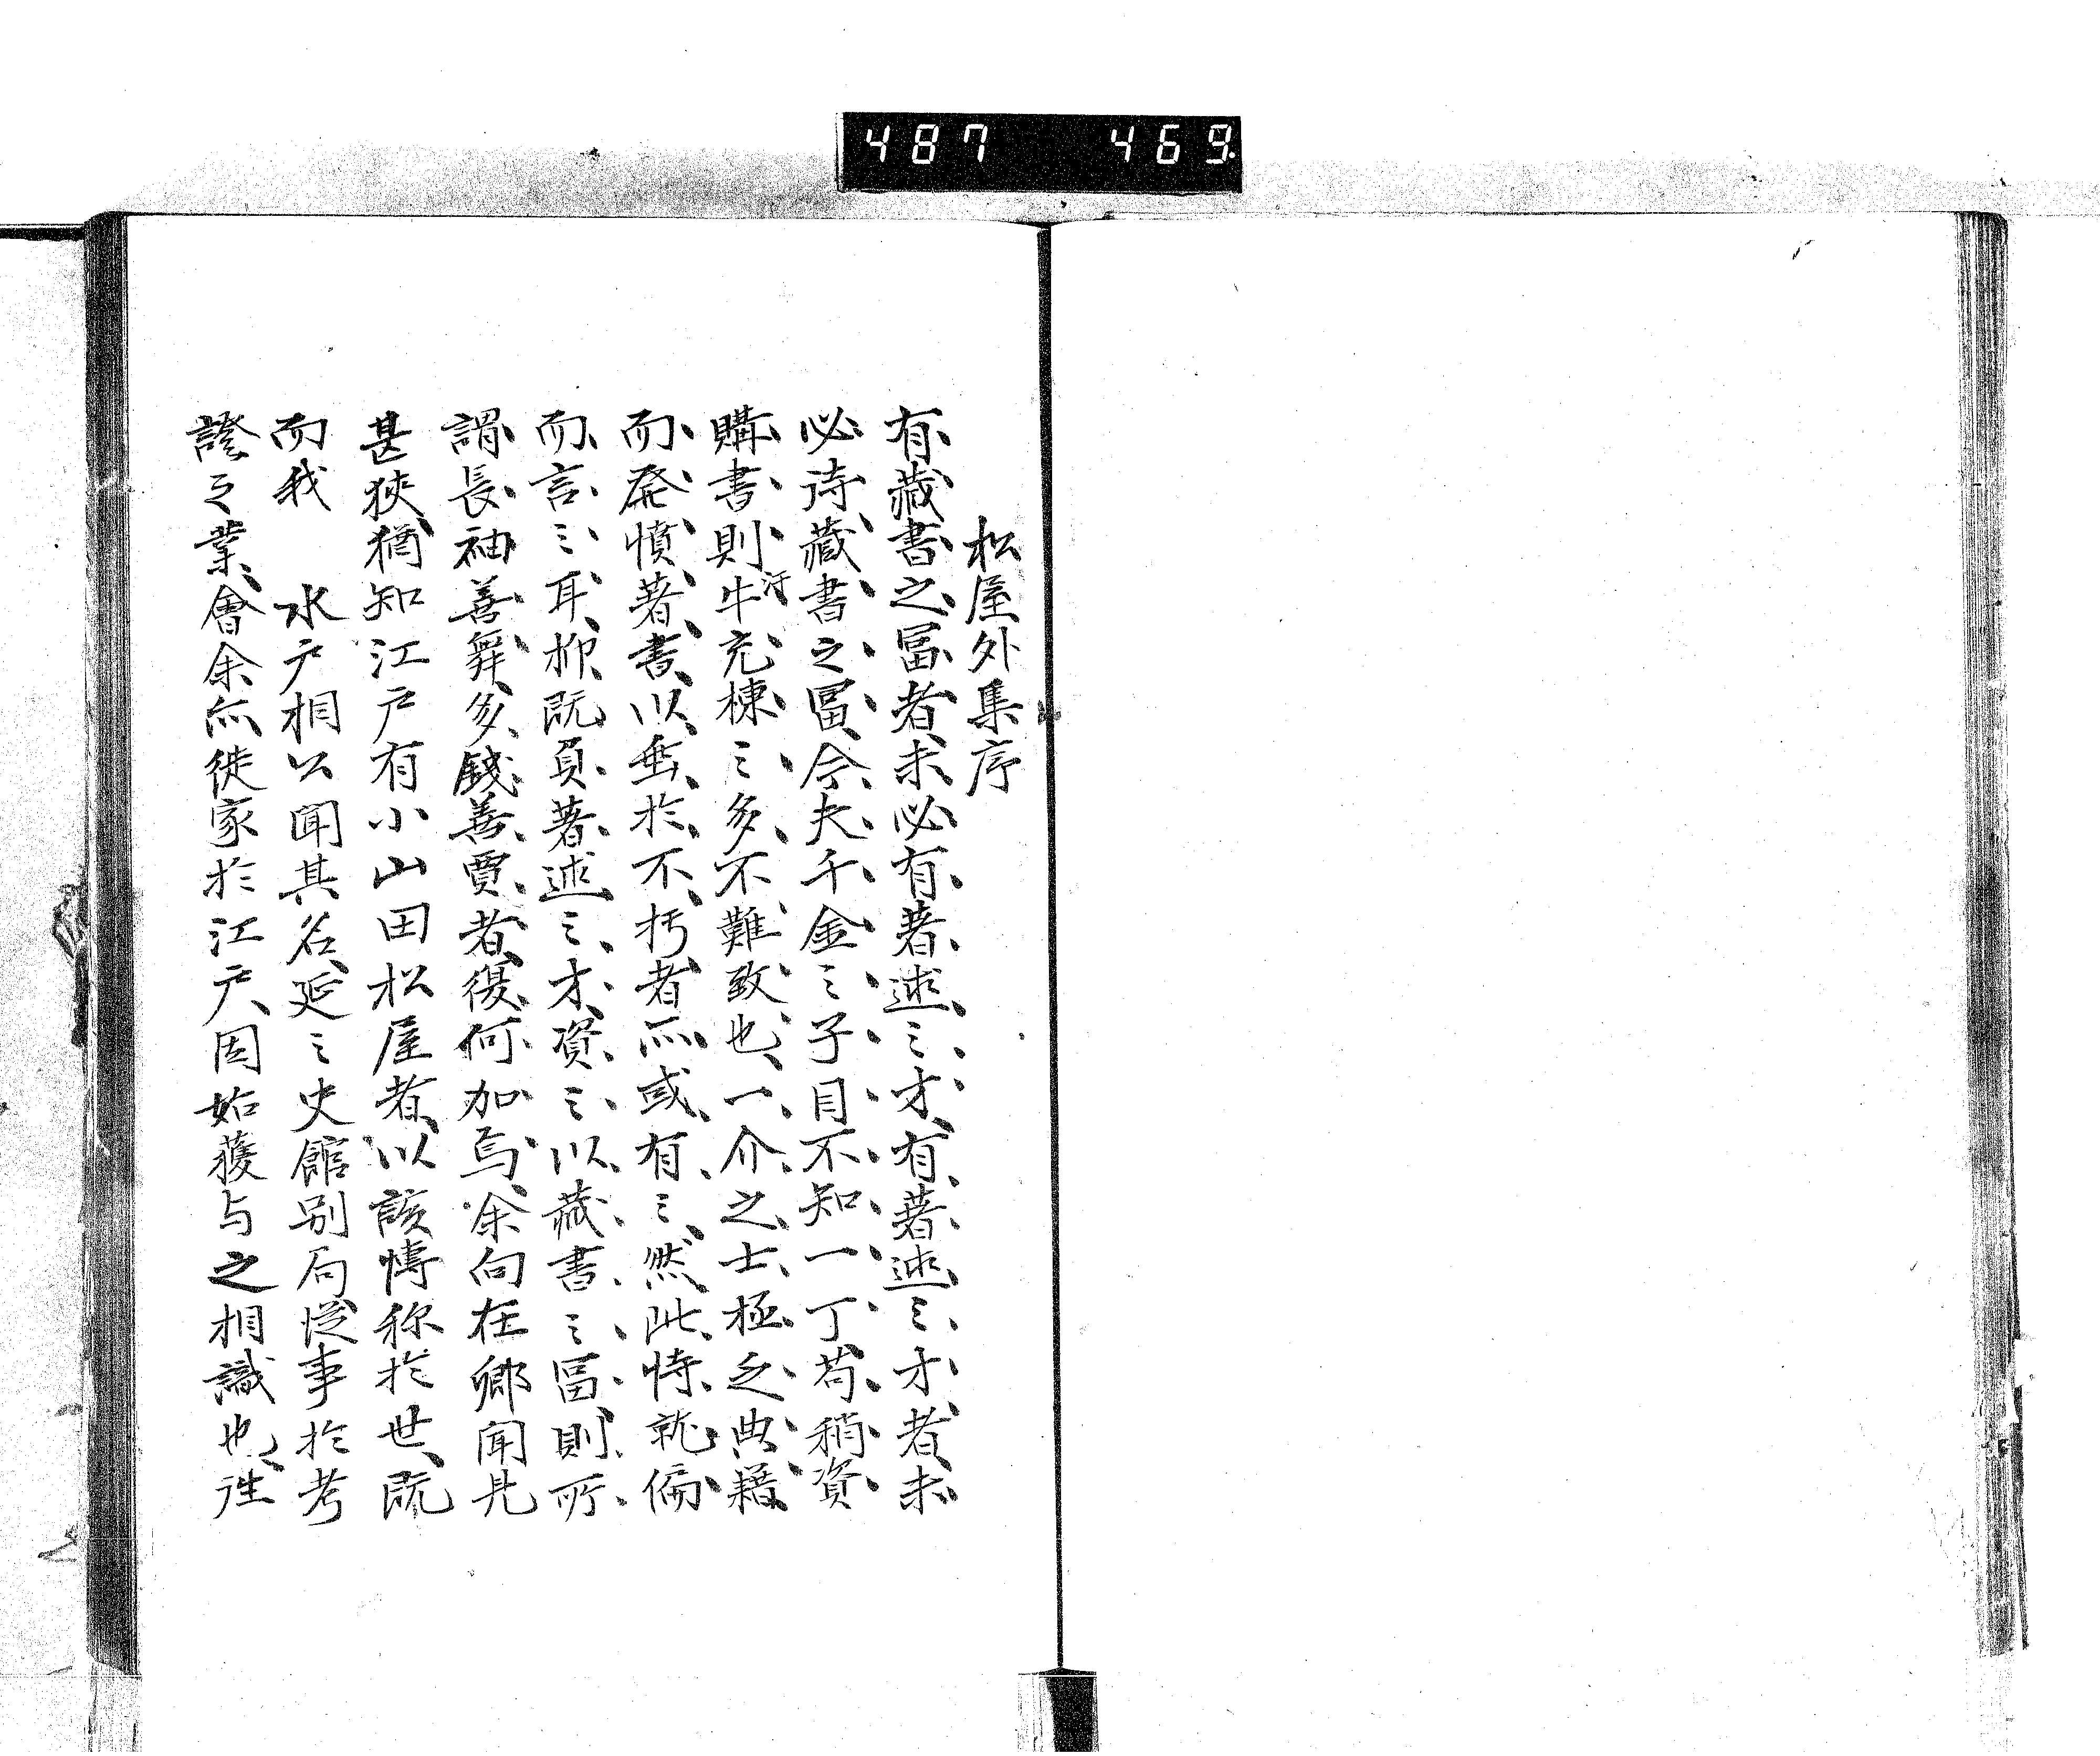 487 469
松屋外集序
有藏書之冨者、未必有著述之才、有著述之才者、未
必恃藏書之冨、今夫千金之子目不知一丁、苟稍資
購書則汗牛充棟之多、不難致也、一介之士極乏典籍
而発憤著書、以垂於不朽者、亦或有之、然此特就偏
而言之耳、抑既負著述之才、資之以藏書之冨、則所
謂長袖善舞、多錢善賈者、復何加焉、余向在郷聞見
甚狹、猶知江戸有小山田松屋者、以該博称於世、既
而我　水戸相公聞其名、延之史館別局、従事於考
證之業、會余亦徙家於江戸、因始獲与之相識也、往